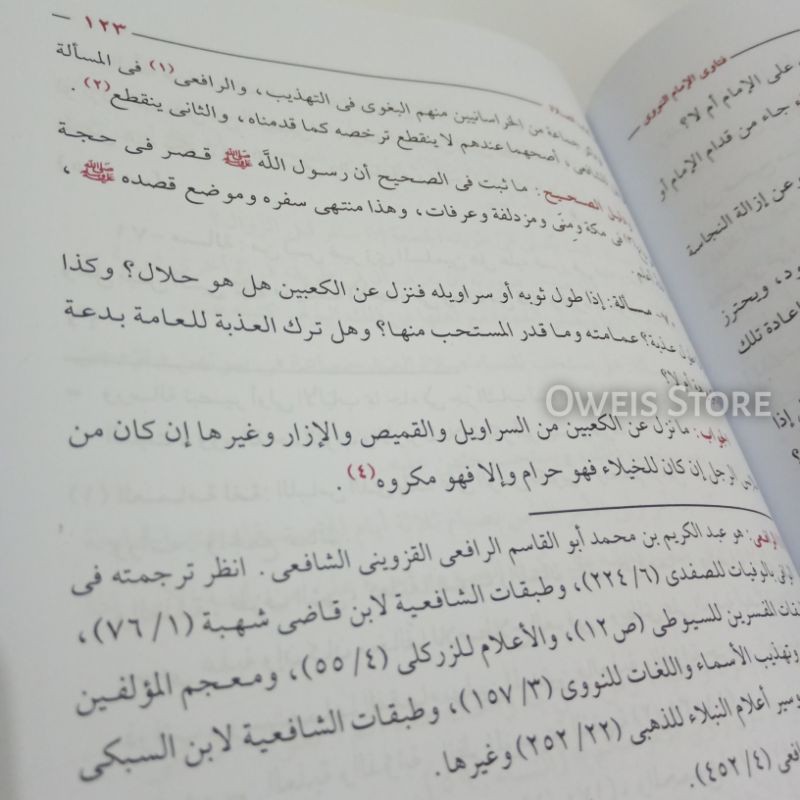 ١٢٣
جماعة من الخراسانيين منهم البغوى فى التهذيب، والرافعى(١) فى المسألة
أصحهما عندهم لا ينقطع ترخصه كما قدمناه، والثانى ينقطع(٢).
الصحيح: ما ثبت فى الصحيح أن رسول اللَّه ﷺ قصر فى حجة
فى مكة ومِنَى ومزدلفة وعرفات، وهذا منتهى سفره وموضع قصده ﷺ،
مسألة: إذا طول ثوبه أو سراويله فنزل عن الكعبين هل هو حلال؟ وكذا
عذبة؟ عمامته وما قدر المستحب منها؟ وهل ترك العذبة للعامة بدعة
الجواب: ما نزل عن الكعبين من السراويل والقميص والإزار وغيرها إن كان من
الرجل إن كان للخيلاء فهو حرام وإلا فهو مكروه(٤).
الرافعى: هو عبد الكريم بن محمد أبو القاسم الرافعى القزوينى الشافعى. انظر ترجمته فى
بالوفيات للصفدى (٦/ ٢٢٤)، وطبقات الشافعية لابن قاضى شهبة (١/ ٧٦)،
المفسرين للسيوطى (ص١٢)، والأعلام للزركلى (٤/ ٥٥)، ومعجم المؤلفين
وتهذيب الأسماء واللغات للنووى (٣/ ١٥٧)، وطبقات الشافعية لابن السبكى
وسير أعلام النبلاء للذهبى (٢٢/ ٢٥٢) وغيرها.
(٤/ ٤٥٢).
فتاوى الإمام النووى
على الإمام أم لا؟
جاء من قدام الإمام أو
عن إزالة النجاسة
ويحترز
إعادة تلك
إذا
OWEIS STORE